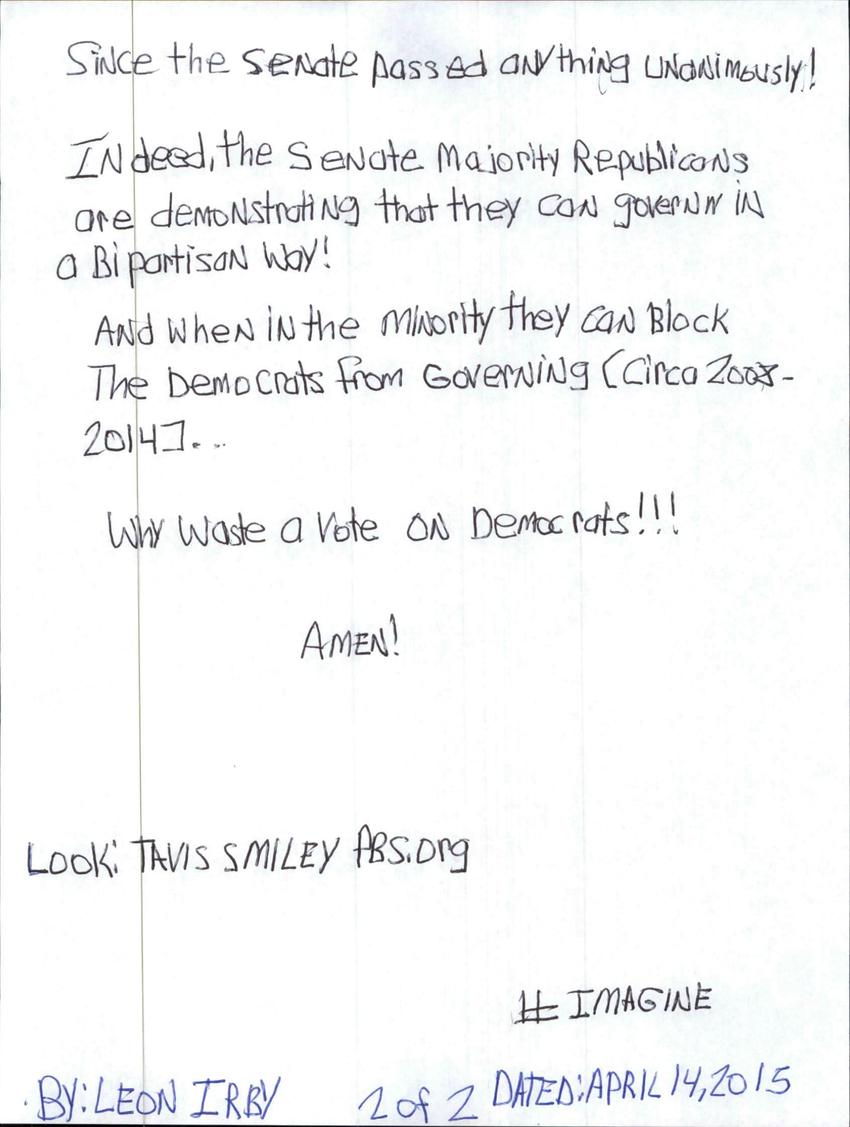 Since the Senate passed anything unanimously!
Indeed, the Senate Majority Republicans
are demonstrating that they can governn in
a Bipartisan Way!
And when in the minority they can Block
The Democrats from Governing (Circa 2008-
2014]...
Why Waste a Vote on Democrats!!!
Amen!
Look: TAVIS SMILEY PBS.org
# IMAGINE
BY: LEON IRBY 2 of 2 DATED: APRIL 14, 2015